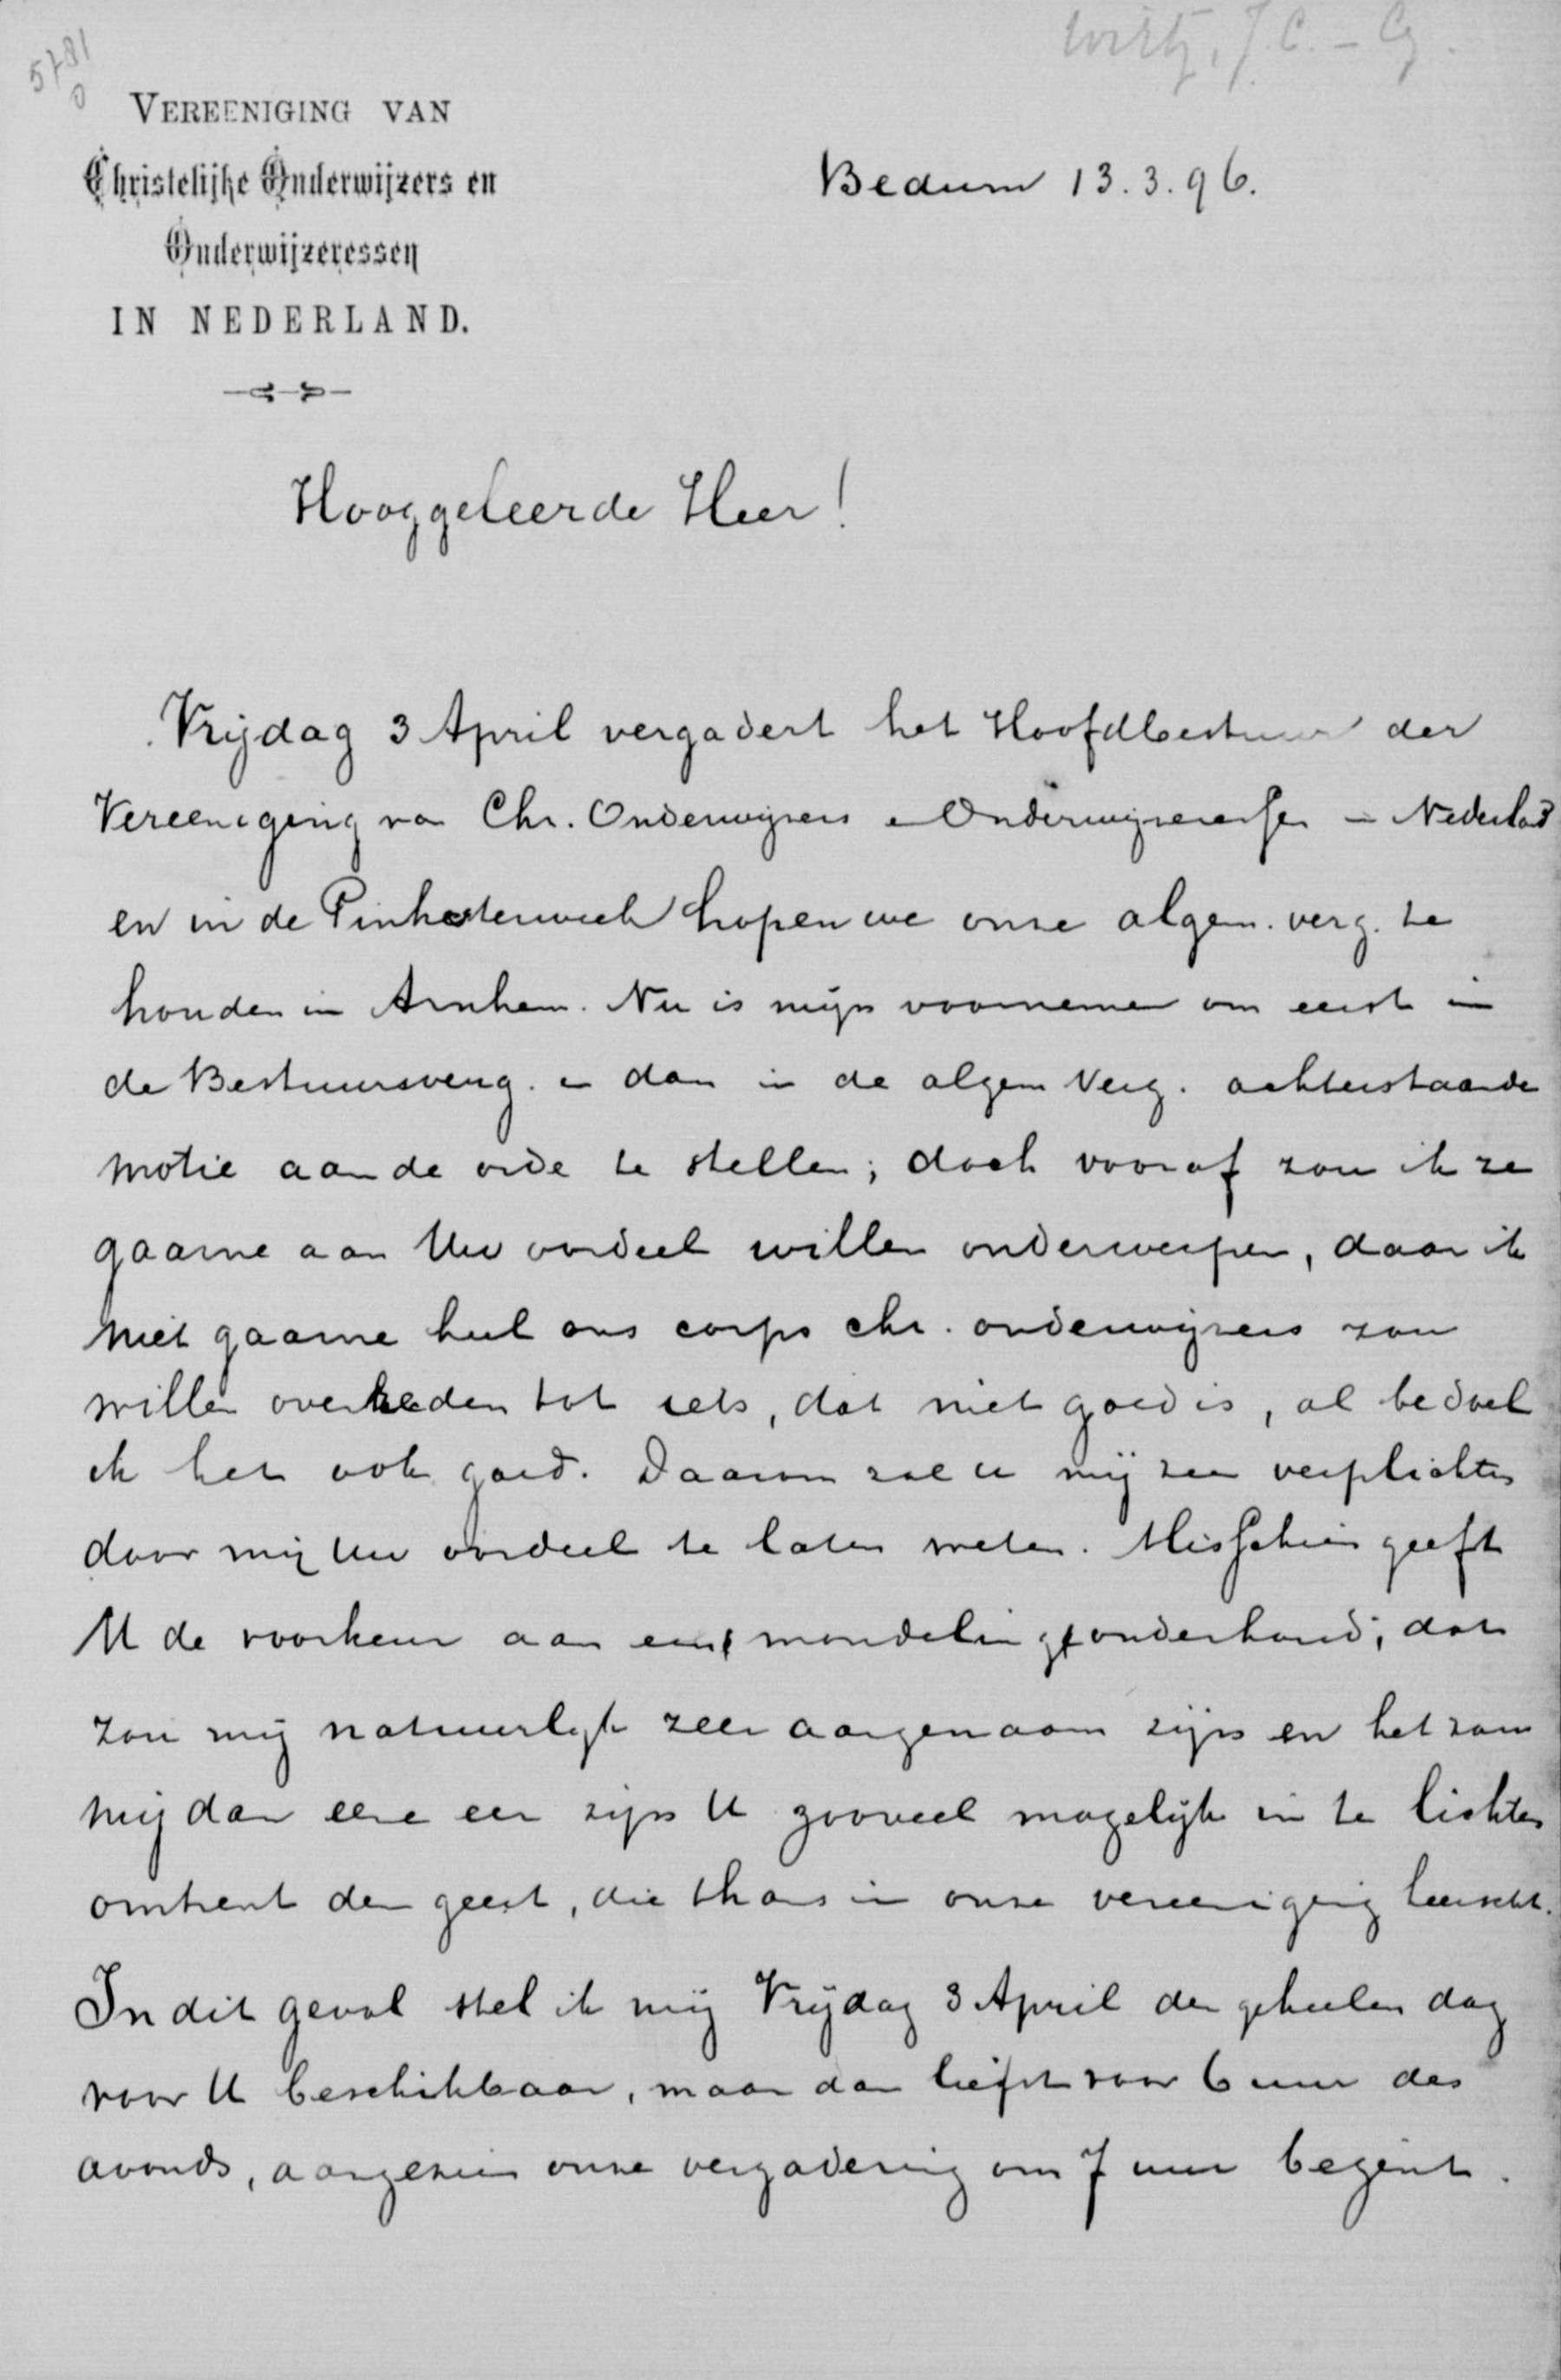 5781
0
Wirtz, J. C. - Cz.
VEREENIGING VAN
Christelijke Onderwijzers en
Onderwijzeressen
IN NEDERLAND.
Bedum 13.3.96.
Hooggeleerde Heer!
Vrijdag 3 April vergadert het Hoofdbestuur der
Vereeniging van Chr. Onderwijzers en Onderwijzeressen in Nederland
en in de Pinksterweek hopen we onze algem. verg. te
houden in Arnhem. Nu is mijn voornemen om eerst in
de Bestuursverg. en dan in de algem Verg. achterstaande
motie aan de orde te stellen; doch vooraf zou ik ze
gaarne aan Uw oordeel willen onderwerpen, daar ik
niet gaarne heel ons corps chr. onderwijzers zou
willen overreden tot iets, dat niet goed is, al bedoel
ik het ook goed. Daarom zal u mij zeer verplichten
door mij Uw oordeel te laten weten. Misschien geeft
U de voorkeur aan een mondeling onderhoud; dat
zou mij natuurlijk zeer aangenaam zijn en het zou
mij dan eene eer zijn U zooveel mogelijk in te lichten
omtrent den geest, die thans in onze vereeniging heerscht.
In dit geval stel ik mij Vrijdag 3 April den geheelen dag
voor U beschikbaar, maar dan liefst voor 6 uur des
avonds, aangezien onze vergadering om 7 uur begint.